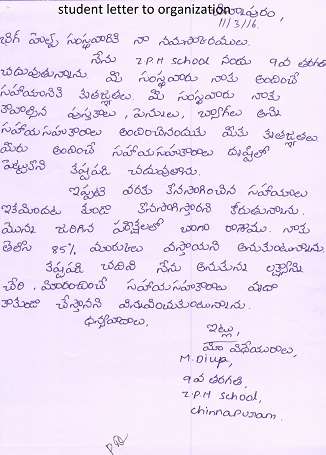 student letter to organization
చిన్నాపురం,
11/3/16.
బిగ్ హెల్ప్ సంస్థవారికి నా నమస్కారములు.
నేను Z.P.H school నందు 9వ తరగతి
చదువుతున్నాను. మీ సంస్థవారు నాకు అందించే
సహాయానికి కృతజ్ఞతలు. మీ సంస్థవారు నాకు
కావాల్సిన పుస్తకాలు, పెన్నులు, బ్యాగ్‌లు అను
సహాయసహకారాలు అందించినందుకు మీకు కృతజ్ఞతలు.
మీరు అందించే సహాయసహకారాలు దృష్టిలో
పెట్టుకొని కష్టపడి చదువుతాను.
ఇప్పటి వరకు కొనసాగించిన సహాయాలు
ఇకమీదట కూడా కొనసాగిస్తారని కోరుతున్నాను.
మొన్న జరిగిన పరీక్షలలో బాగా రాశాను. నాకు
తెలిసి 85% మార్కులు వస్తాయని అనుకుంటున్నాను.
కష్టపడి చదివి నేను అనుకున్న లక్ష్యాన్ని
చేరి, మీరందించే సహాయసహకారాలు వృథా
కాకుండా చేస్తానని విన్నవించుకుంటున్నాను.
ధన్యవాదాలు,
ఇట్లు,
మీ విధేయురాలు,
M. Divya,
9వ తరగతి,
Z.P.H school,
chinnapuram.